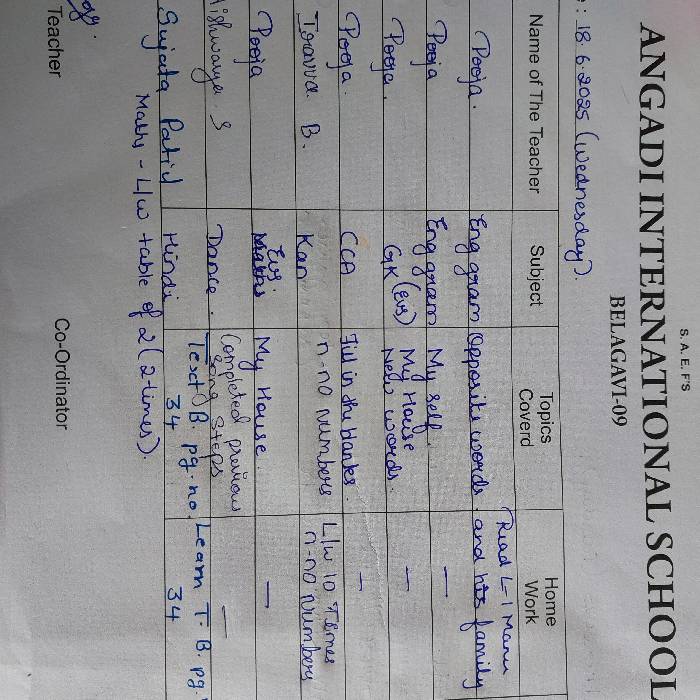 S.A.E.F'S
ANGADI INTERNATIONAL SCHOOL
BELAGAVI-09
: 18.6.2025 (Wednesday).
Name of The Teacher Subject Topics Coverd Home Work
Pooja. Eng gram Opposite words. Read L-1 Manu and his family
Pooja Eng gram My self. —
Pooja. GK (EVS) My House New words. —
Pooja. CCA Fill in the blanks. —
B. Kan n-no numbers L/w 10 Times n-no numbers
Pooja Maths EVS. My House. —
S Dance. Completed previous song steps —
Sujata Patil Hindi Text B. pg. no. 34 Learn T. B. pg. 34
Maths - L/w table of 2 (2-times).
Teacher Co-Ordinator